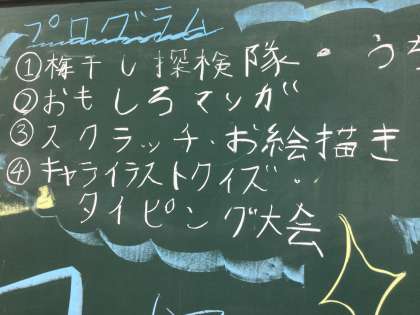 プログラム
①梅干し探検隊・う
②おもしろマンガ
③スクラッチ・お絵描き
④キャライラストクイズ・
タイピング大会